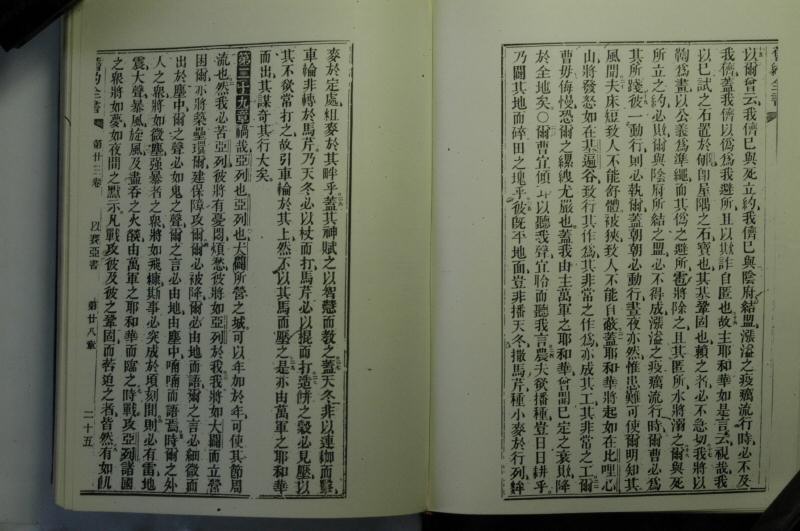 以爾曾云我儕已與死立約我儕已與陰府結盟漲溢之疫癘流行時必不及
我儕蓋我儕以偽為我避所且以欺詐自匿也故主耶和華如是言云視哉我
以已試之石置於郇卽屋隅之石寶也其基鞏固也賴之者必不急切我將以
鞫為畫以公義為準繩而其偽之避所雹將除之且其匿所水將溺之爾與死
所立之約必敗爾與陰府所結之盟必不得成漲溢之疫癘流行時爾曹必為
其所踐彼一動行則必執爾蓋朝朝必動行晝夜亦然惟出難可使爾明知其
風聞夫床短致人不能舒體被狹致人不能自蔽蓋耶和華將起如在比哩心
山將發怒如在基遍谷致行其作為其非常之作為亦成其工其非常之工爾
曹毋侮慢恐爾之縲絏尤嚴也蓋我由主萬軍之耶和華曾聞已定之衰敗降
於全地矣○爾曹宜傾耳以聽我聲宜聆而聽我言農夫欲播種豈日日耕乎
乃闢其地而碎田之塊乎彼旣平地面豈非播天冬撒馬芹種小麥於行列麰
麥於定處粗麥於其畔乎蓋其神賦之以智慧而教之蓋天冬非以連枷而擊
車輪非轉於馬芹乃天冬必以杖而打馬芹必以棍而打造餅之穀必見壓以
其不欲常打之故引車輪於其上然不以其馬而壓之是亦由萬軍之耶和華
而出其謀奇其行大矣
第二十九章禍哉亞列也亞列也大闢所營之城可以年加於年可使其節周
流也然我必苦亞列彼將有憂悶煩愁彼將如亞列於我我將如大闢而立營
困爾亦將築壘環爾建保障攻爾爾必被降爾必由地而語爾之言必細微而
出於塵中爾之聲必如鬼之聲爾之言必由地由塵中喃喃而語焉時爾之外
人之衆將如微塵强暴者之衆將如飛糠斯事必突成於頃刻間則必有雷地
震大聲暴風旋風及盡吞之火燄由萬軍之耶和華而臨之時戰攻亞列諸國
之衆將如夢如夜間之默示凡戰攻彼及彼之鞏固而苦迫之者皆然有如飢
舊約全書 第廿三卷 以賽亞書 第廿八章 二十五